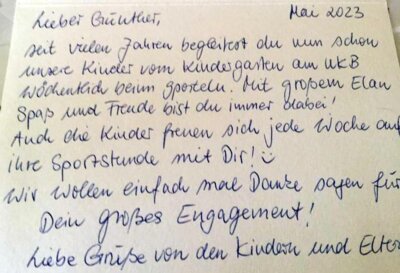 Lieber Günther, Mai 2023
seit vielen Jahren begleitest du nun schon
unsere Kinder vom Kindergarten am UKB
wöchentlich beim Sporteln. Mit großem Elan
Spaß und Freude bist du immer dabei!
Auch die Kinder freuen sich jede Woche auf
ihre Sportstunde mit Dir! ☺
Wir wollen einfach mal Danke sagen für
Dein großes Engagement!
Liebe Grüße von den Kindern und Elter